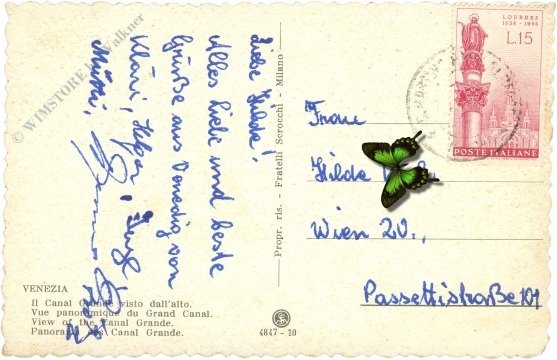 Liebe Hilde!
Alles Liebe und beste
Grüße aus Venedig von
Klári, Helga, Inge
Mutti,
Frau
Hilde
Wien 20.,
Passettistraße 101
LOURDES
1858 - 1958
L.15
POSTE ITALIANE
Propr. ris. - Fratelli Scrocchi - Milano
VENEZIA
Il Canal Grande visto dall'alto.
Vue panoramique du Grand Canal.
View of the Canal Grande.
Panorama des Canal Grande.
4847 - 10
© WIMSTORE, Walkner